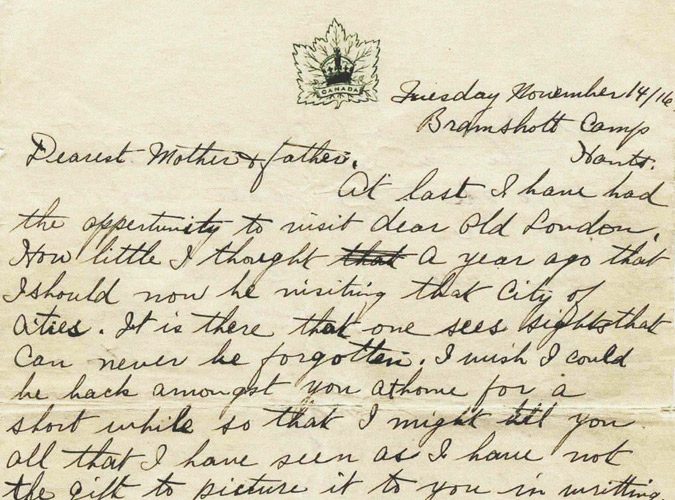 CANADA
Tuesday November 14/16
Bramshott Camp
Hants.
Dearest Mother & father.
At last I have had
the oppertunity to visit dear old London.
How little I thought that a year ago that
I should now be visiting that City of
Cities. It is there that one sees sights that
Can never be forgotten. I wish I could
be back amongst you at home for a
short while so that I might tell you
all that I have seen as I have not
the gift to picture it to you in writting.